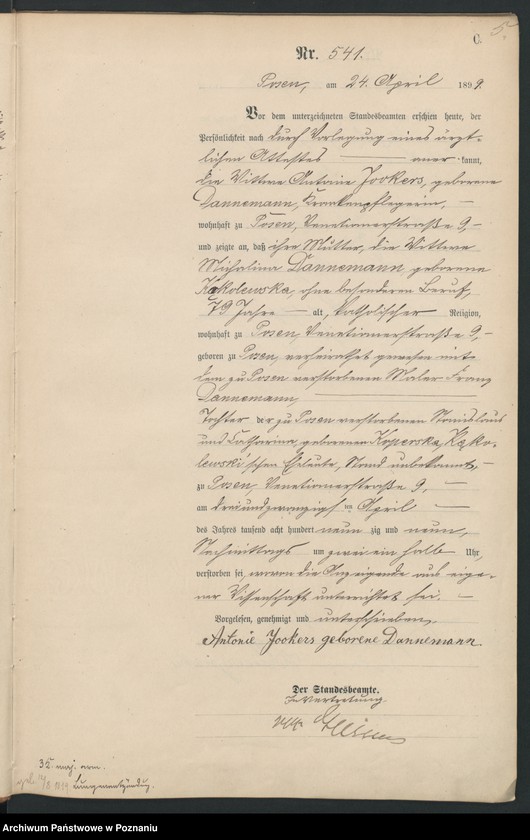 C.
Nr. 541.
Posen, am 24. April 1899.
Vor dem unterzeichneten Standesbeamten erschien heute, der
Persönlichkeit nach durch Vorlegung eines ärzt-
lichen Attestes aner kannt,
die Wittwe Antonie Jookers, geborene
Dannemann, Krankenpflegerin,
wohnhaft zu Posen, Venetianerstraße 9,
und zeigte an, daß ihre Mutter, die Wittwe
Michalina Dannemann geborene
Kąkolewska, ohne besonderen Beruf,
79 Jahre alt, katholischer Religion,
wohnhaft zu Posen, Venetianerstraße 9,
geboren zu Posen, verheirathet gewesen mit
dem zu Posen verstorbenen Maler Franz
Dannemann,
Tochter der zu Posen verstorbenen Stanislaus
und Catharina, geborenen Koperska, Kąko-
lewski'schen Eheleute, Stand unbekannt,
zu Posen, Venetianerstraße 9,
am dreiundzwanzigsten April
des Jahres tausend acht hundert neun zig und neun,
Nachmittags um zwei ein halb Uhr
verstorben sei, wovon die Anzeigende aus eige-
ner Wissenschaft unterrichtet sei.
Vorgelesen, genehmigt und unterschrieben
Antonie Jookers geborene Dannemann.
Der Standesbeamte.
In Vertretung
32.
1899 Lungenentzündung.
Archiwum Państwowe w Poznaniu